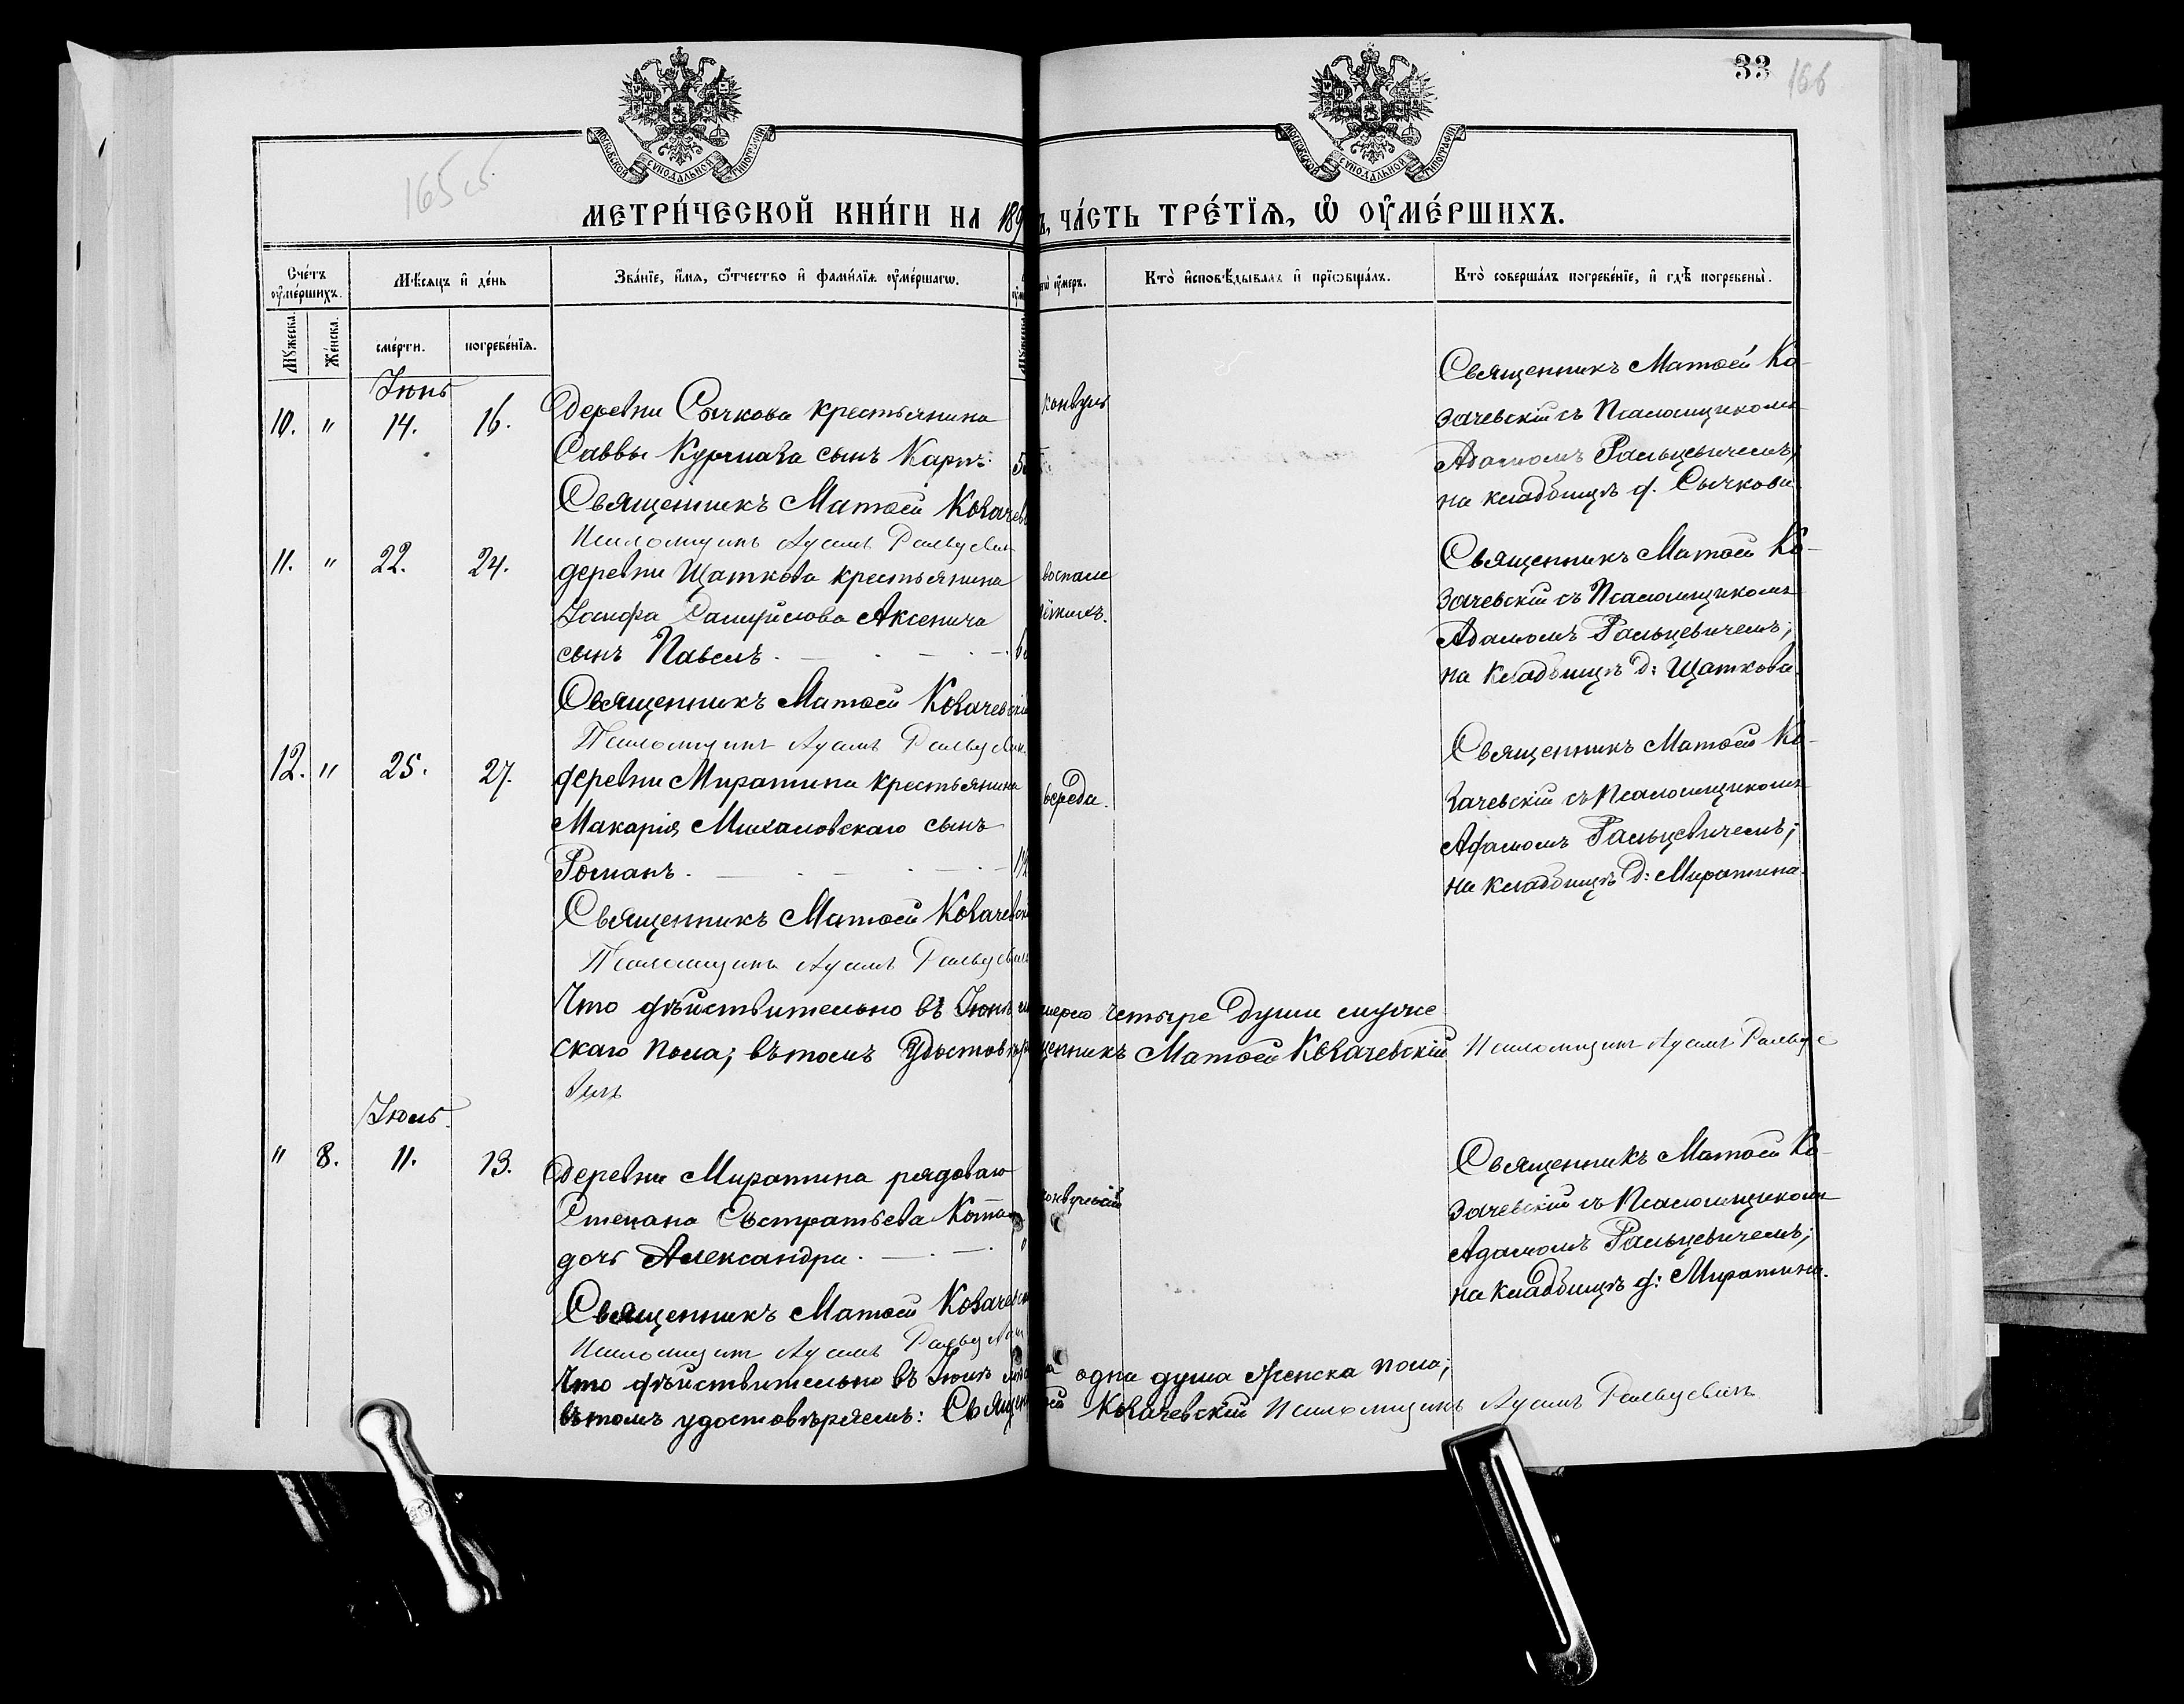 33 166
165 об.
МОСКОВСКОЙ СѴНОДАЛЬНОЙ ТИПОГРАФІИ
МОСКОВСКОЙ СѴНОДАЛЬНОЙ ТИПОГРАФІИ
МЕТРИ́ЧЕСКОЙ КНИ́ГИ НА 189
Ъ, ЧА́СТЬ ТРЕ́ТІѦ, Ѡ҆ ОУ҆МЕ́РШИХЪ.
Сче́тъ оу҆ме́ршихъ.
Мѣ́сѧцъ и҆ де́нь
Зва́нїе, и҆́мѧ, ѻ҆́тчество и҆ фами́лїѧ оу҆ме́ршагѡ.
оу҆́меръ.
Кто̀ и҆сповѣ́дывалъ и҆ прїѡбща́лъ.
Кто̀ соверша́лъ погребе́нїе, и҆ гдѣ̀ погребены̀.
Мꙋ́жеска.
Же́нска.
сме́рти.
погребе́нїѧ.
Іюнь
10. " 14. 16.
Деревни Сычкова крестьянина
Саввы Курмаза сынъ Карпъ.
Священникъ Матѳей Козачев
Псаломщикъ Адамъ Ральцевич
конвуль
Священникъ Матѳей Ко-
зачевскій съ Псаломщикомъ
Адамомъ Ральцевичемъ;
на кладбищѣ д. Сычкова.
11. " 22. 24.
деревни Щаткова крестьянина
Іосифа Самуйлова Аксенича
сынъ Павелъ.
Священникъ Матѳей Козачевскій
Псаломщикъ Адамъ Ральцевич
воспале
Священникъ Матѳей Ко-
зачевскій съ Псаломщикомъ
Адамомъ Ральцевичемъ;
на Кладбищѣ д: Щаткова.
12. " 25. 27.
деревни Миратина крестьянина
Макарія Михаловскаго сынъ
Романъ.
Священникъ Матѳей Козачевскі
Псаломщикъ Адамъ Ральцевичъ
вереда.
Священникъ Матѳей Ко-
зачевскій съ Псаломщикомъ
Адамомъ Ральцевичемъ;
на кладбищѣ д: Миратина.
Что дѣйствительно въ Іюнѣ
мерло четыре души муже
скаго пола; въ томъ Удостовѣр
щенникъ Матѳей Козачевскій Псаломщикъ Адамъ Ральце
вичъ
Іюль.
" 8. 11. 13.
Деревни Миратина рядоваго
Степана Евстратьева
дочь Александра.
Священникъ Матѳей Козачевск
Псаломщикъ Адамъ Ральцевич
онвульсій
Священникъ Матѳей Ко-
зачевскій съ Псаломщикомъ
Адамомъ Ральцевичемъ;
на кладбищѣ д: Миратина.
Что дѣйствительно въ Іюлѣ
одна душа женска пола;
въ томъ удостовѣряемъ: Священ
Козачевскій Псаломщикъ Адамъ Ральцевичъ